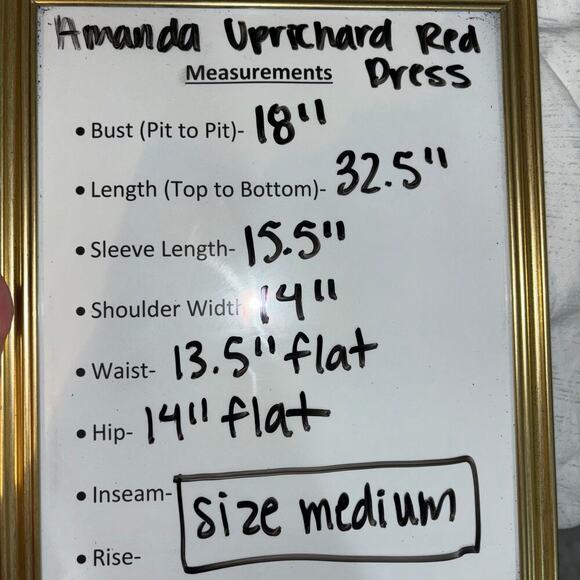 Amanda Uprichard Red
Measurements Dress
• Bust (Pit to Pit)- 18"
• Length (Top to Bottom)- 32.5"
• Sleeve Length- 15.5"
• Shoulder Width 14"
• Waist- 13.5" flat
• Hip- 14" flat
• Inseam-
size medium
• Rise-